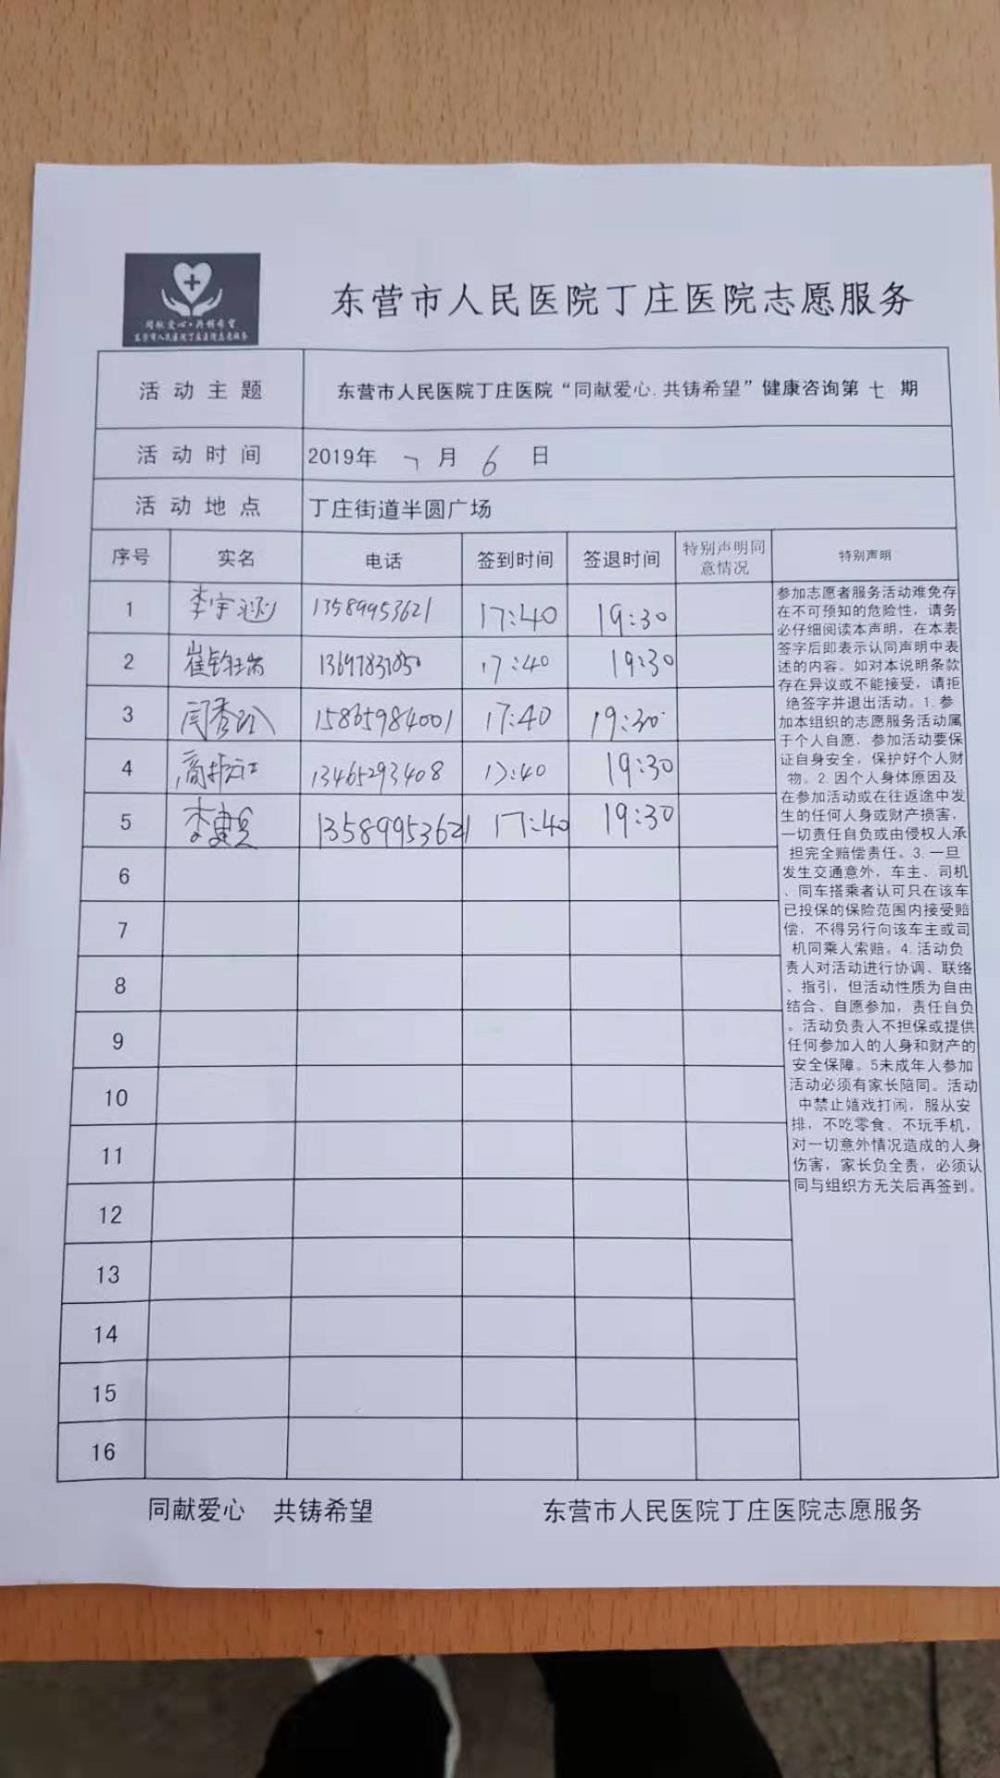 同献爱心·共铸希望
东营市人民医院丁庄医院志愿服务
东营市人民医院丁庄医院志愿服务
活动主题 东营市人民医院丁庄医院“同献爱心.共铸希望”健康咨询第 七 期
活动时间 2019年 7 月 6 日
活动地点 丁庄街道半圆广场
序号 实名 电话 签到时间 签退时间 特别声明同意情况 特别声明
1 李宇涵 13589953621 17:40 19:30
2 崔 17:40 19:30
3 闫秀 15865984001 17:40 19:30
4 商 13465293408 17:40 19:30
5 李 13589953621 17:40 19:30
6
7
8
9
10
11
12
13
14
15
16
参加志愿者服务活动难免存
在不可预知的危险性，请务
必仔细阅读本声明，在本表
签字后即表示认同声明中表
述的内容。如对本说明条款
存在异议或不能接受，请拒
绝签字并退出活动。1.参
加本组织的志愿服务活动属
于个人自愿，参加活动要保
证自身安全，保护好个人财
物。2.因个人身体原因及
在参加活动或在往返途中发
生的任何人身或财产损害，
一切责任自负或由侵权人承
担完全赔偿责任。3.一旦
发生交通意外，车主、司机
、同车搭乘者认可只在该车
已投保的保险范围内接受赔
偿，不得另行向该车主或司
机同乘人索赔。4.活动负
责人对活动进行协调、联络
、指引，但活动性质为自由
结合、自愿参加，责任自负
。活动负责人不担保或提供
任何参加人的人身和财产的
安全保障。5未成年人参加
活动必须有家长陪同。活动
中禁止嬉戏打闹，服从安
排，不吃零食、不玩手机，
对一切意外情况造成的人身
伤害，家长负全责，必须认
同与组织方无关后再签到。
同献爱心 共铸希望 东营市人民医院丁庄医院志愿服务